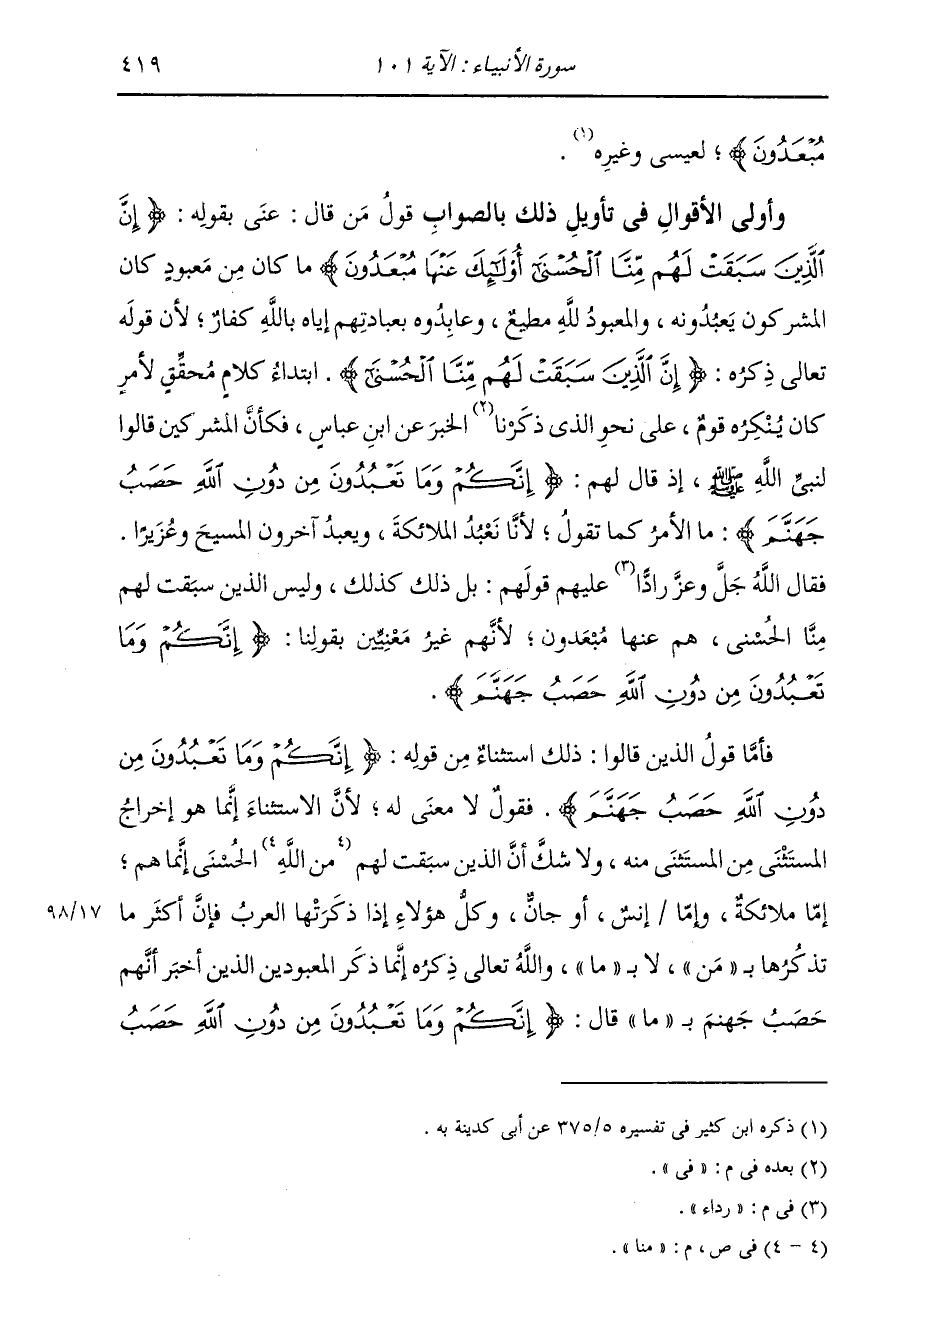 سورة الأنبياء : الآية ١٠١ ٤١٩
مُبْعَدُونَ ﴾ ؛ لعيسى وغيرِه(١) .
وأولى الأقوالِ فى تأويلِ ذلك بالصوابِ قولُ مَن قال : عنَى بقولِه : ﴿ إِنَّ
ٱلَّذِينَ سَبَقَتْ لَهُم مِّنَّا ٱلْحُسْنَىٰٓ أُوْلَٰٓئِكَ عَنْهَا مُبْعَدُونَ ﴾ ما كان مِن مَعبودٍ كان
المشركون يَعبُدُونه ، والمعبودُ للَّهِ مطيعٌ ، وعابِدُوه بعبادتِهم إياه باللَّهِ كفارٌ ؛ لأن قولَه
تعالى ذِكرُه : ﴿ إِنَّ ٱلَّذِينَ سَبَقَتْ لَهُم مِّنَّا ٱلْحُسْنَىٰٓ ﴾ . ابتداءُ كلامٍ مُحقِّقٍ لأمرٍ
كان يُنْكِرُه قومٌ ، على نحوِ الذى ذكَرْنا(٢) الخبرَ عن ابنِ عباسٍ ، فكأنَّ المشركين قالوا
لنبىِّ اللَّهِ ﷺ ، إذ قال لهم : ﴿ إِنَّكُمْ وَمَا تَعْبُدُونَ مِن دُونِ ٱللَّهِ حَصَبُ
جَهَنَّمَ ﴾ : ما الأمرُ كما تقولُ ؛ لأنَّا نَعْبُدُ الملائكةَ ، ويعبدُ آخرون المسيحَ وعُزَيرًا .
فقال اللَّهُ جَلَّ وعزَّ رادًّا(٣) عليهم قولَهم : بل ذلك كذلك ، وليس الذين سبَقت لهم
مِنَّا الحُسْنى ، هم عنها مُبْعَدون ؛ لأنَّهم غيرُ مَعْنِيِّين بقولِنا : ﴿ إِنَّكُمْ وَمَا
تَعْبُدُونَ مِن دُونِ ٱللَّهِ حَصَبُ جَهَنَّمَ ﴾ .
فأمَّا قولُ الذين قالوا : ذلك استثناءٌ مِن قولِه : ﴿ إِنَّكُمْ وَمَا تَعْبُدُونَ مِن
دُونِ ٱللَّهِ حَصَبُ جَهَنَّمَ ﴾ . فقولٌ لا معنَى له ؛ لأنَّ الاستثناءَ إنَّما هو إخراجُ
المستَثْنَى مِن المستَثنَى منه ، ولا شكَّ أنَّ الذين سبَقت لهم (٤من اللَّهِ٤) الحُسْنَى إنَّما هم ؛
إمَّا ملائكةٌ ، وإمَّا / إنسٌ ، أو جانٌّ ، وكلُّ هؤلاءِ إذا ذكَرَتْها العربُ فإنَّ أكثَر ما ٩٨/١٧
تذكُرُها بـ « مَن » ، لا بـ « ما » ، واللَّهُ تعالى ذِكرُه إنَّما ذكَر المعبودين الذين أخبَر أنَّهم
حَصَبُ جَهنمَ بـ « ما » قال : ﴿ إِنَّكُمْ وَمَا تَعْبُدُونَ مِن دُونِ ٱللَّهِ حَصَبُ
(١) ذكره ابن كثير فى تفسيره ٣٧٥/٥ عن أبى كدينة به .
(٢) بعده فى م : « فى » .
(٣) فى م : « رداء » .
(٤ - ٤) فى ص ، م : « منا » .